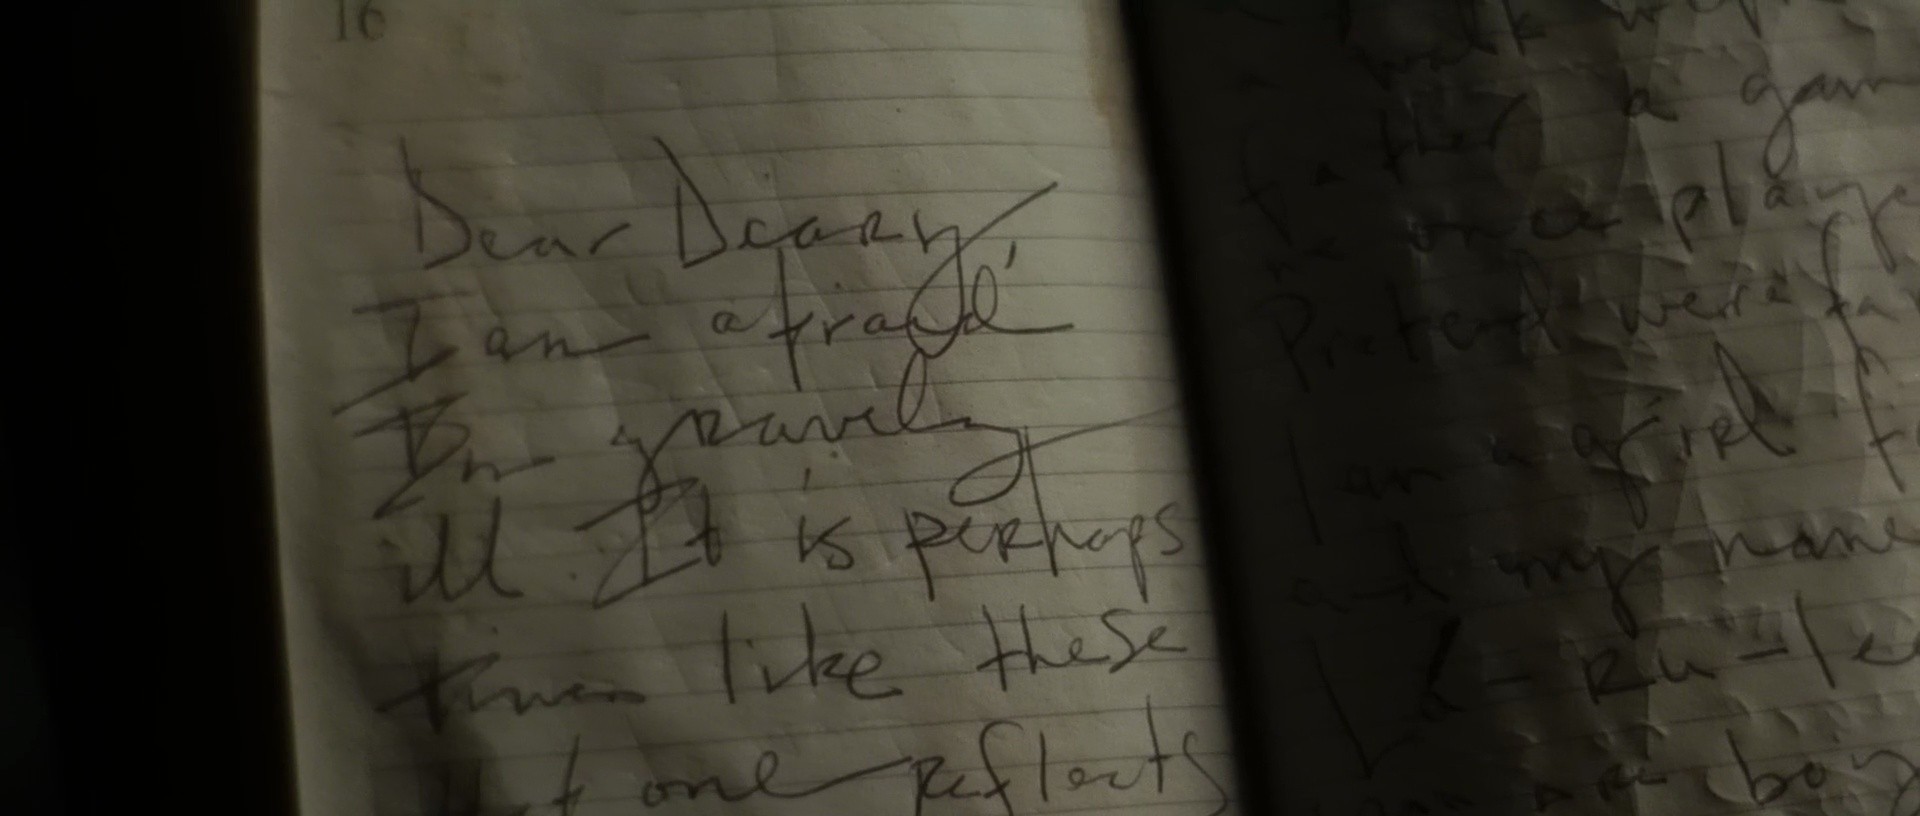 16
Dear Deary,
I am afraid
I'm gravely
ill. It is perhaps
times like these
that one reflects
walk
father a gam
he once playe
Pretend were fa
I am a girl
and my name
boy